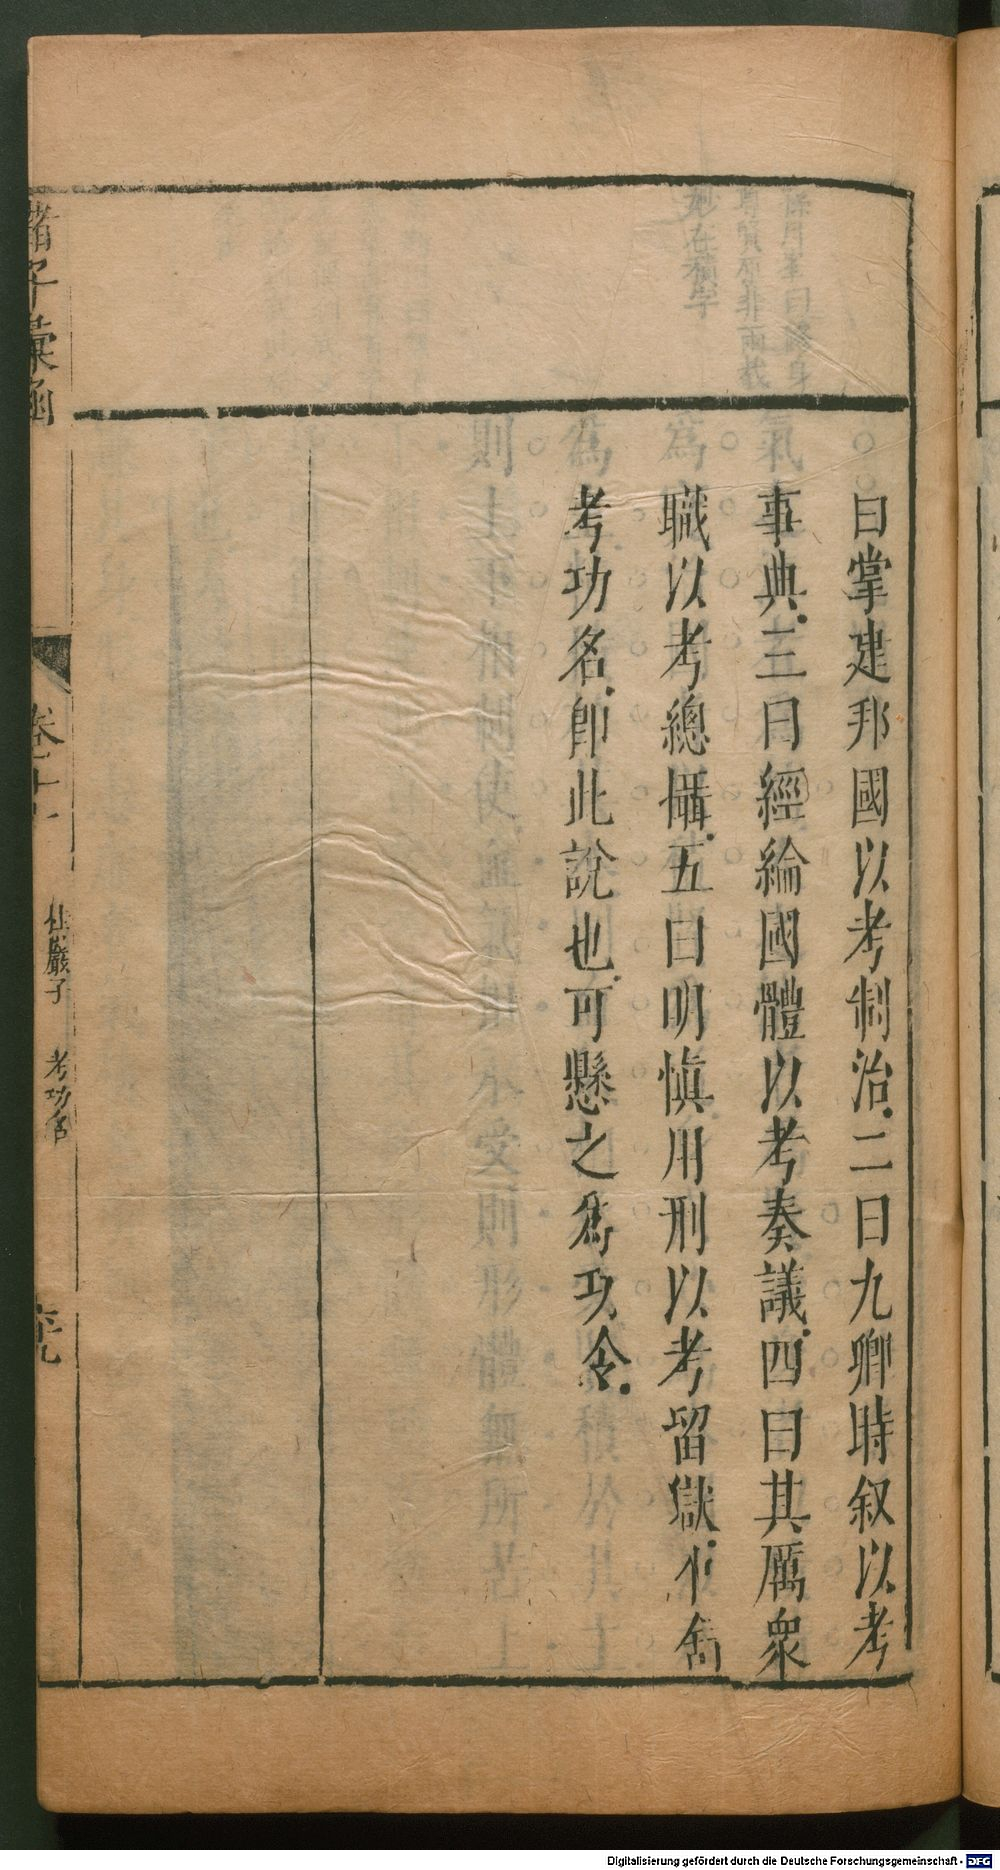 曰掌建邦國以考制治二曰九卿時叙以考
事典三曰經綸國體以考奏議四曰其厲衆
職以考總攝五曰明慎用刑以考留獄
考功名卽此說也可懸之爲功令
諸子彙函
卷十
巖子 考功
Digitalisierung gefördert durch die Deutsche Forschungsgemeinschaft - DFG